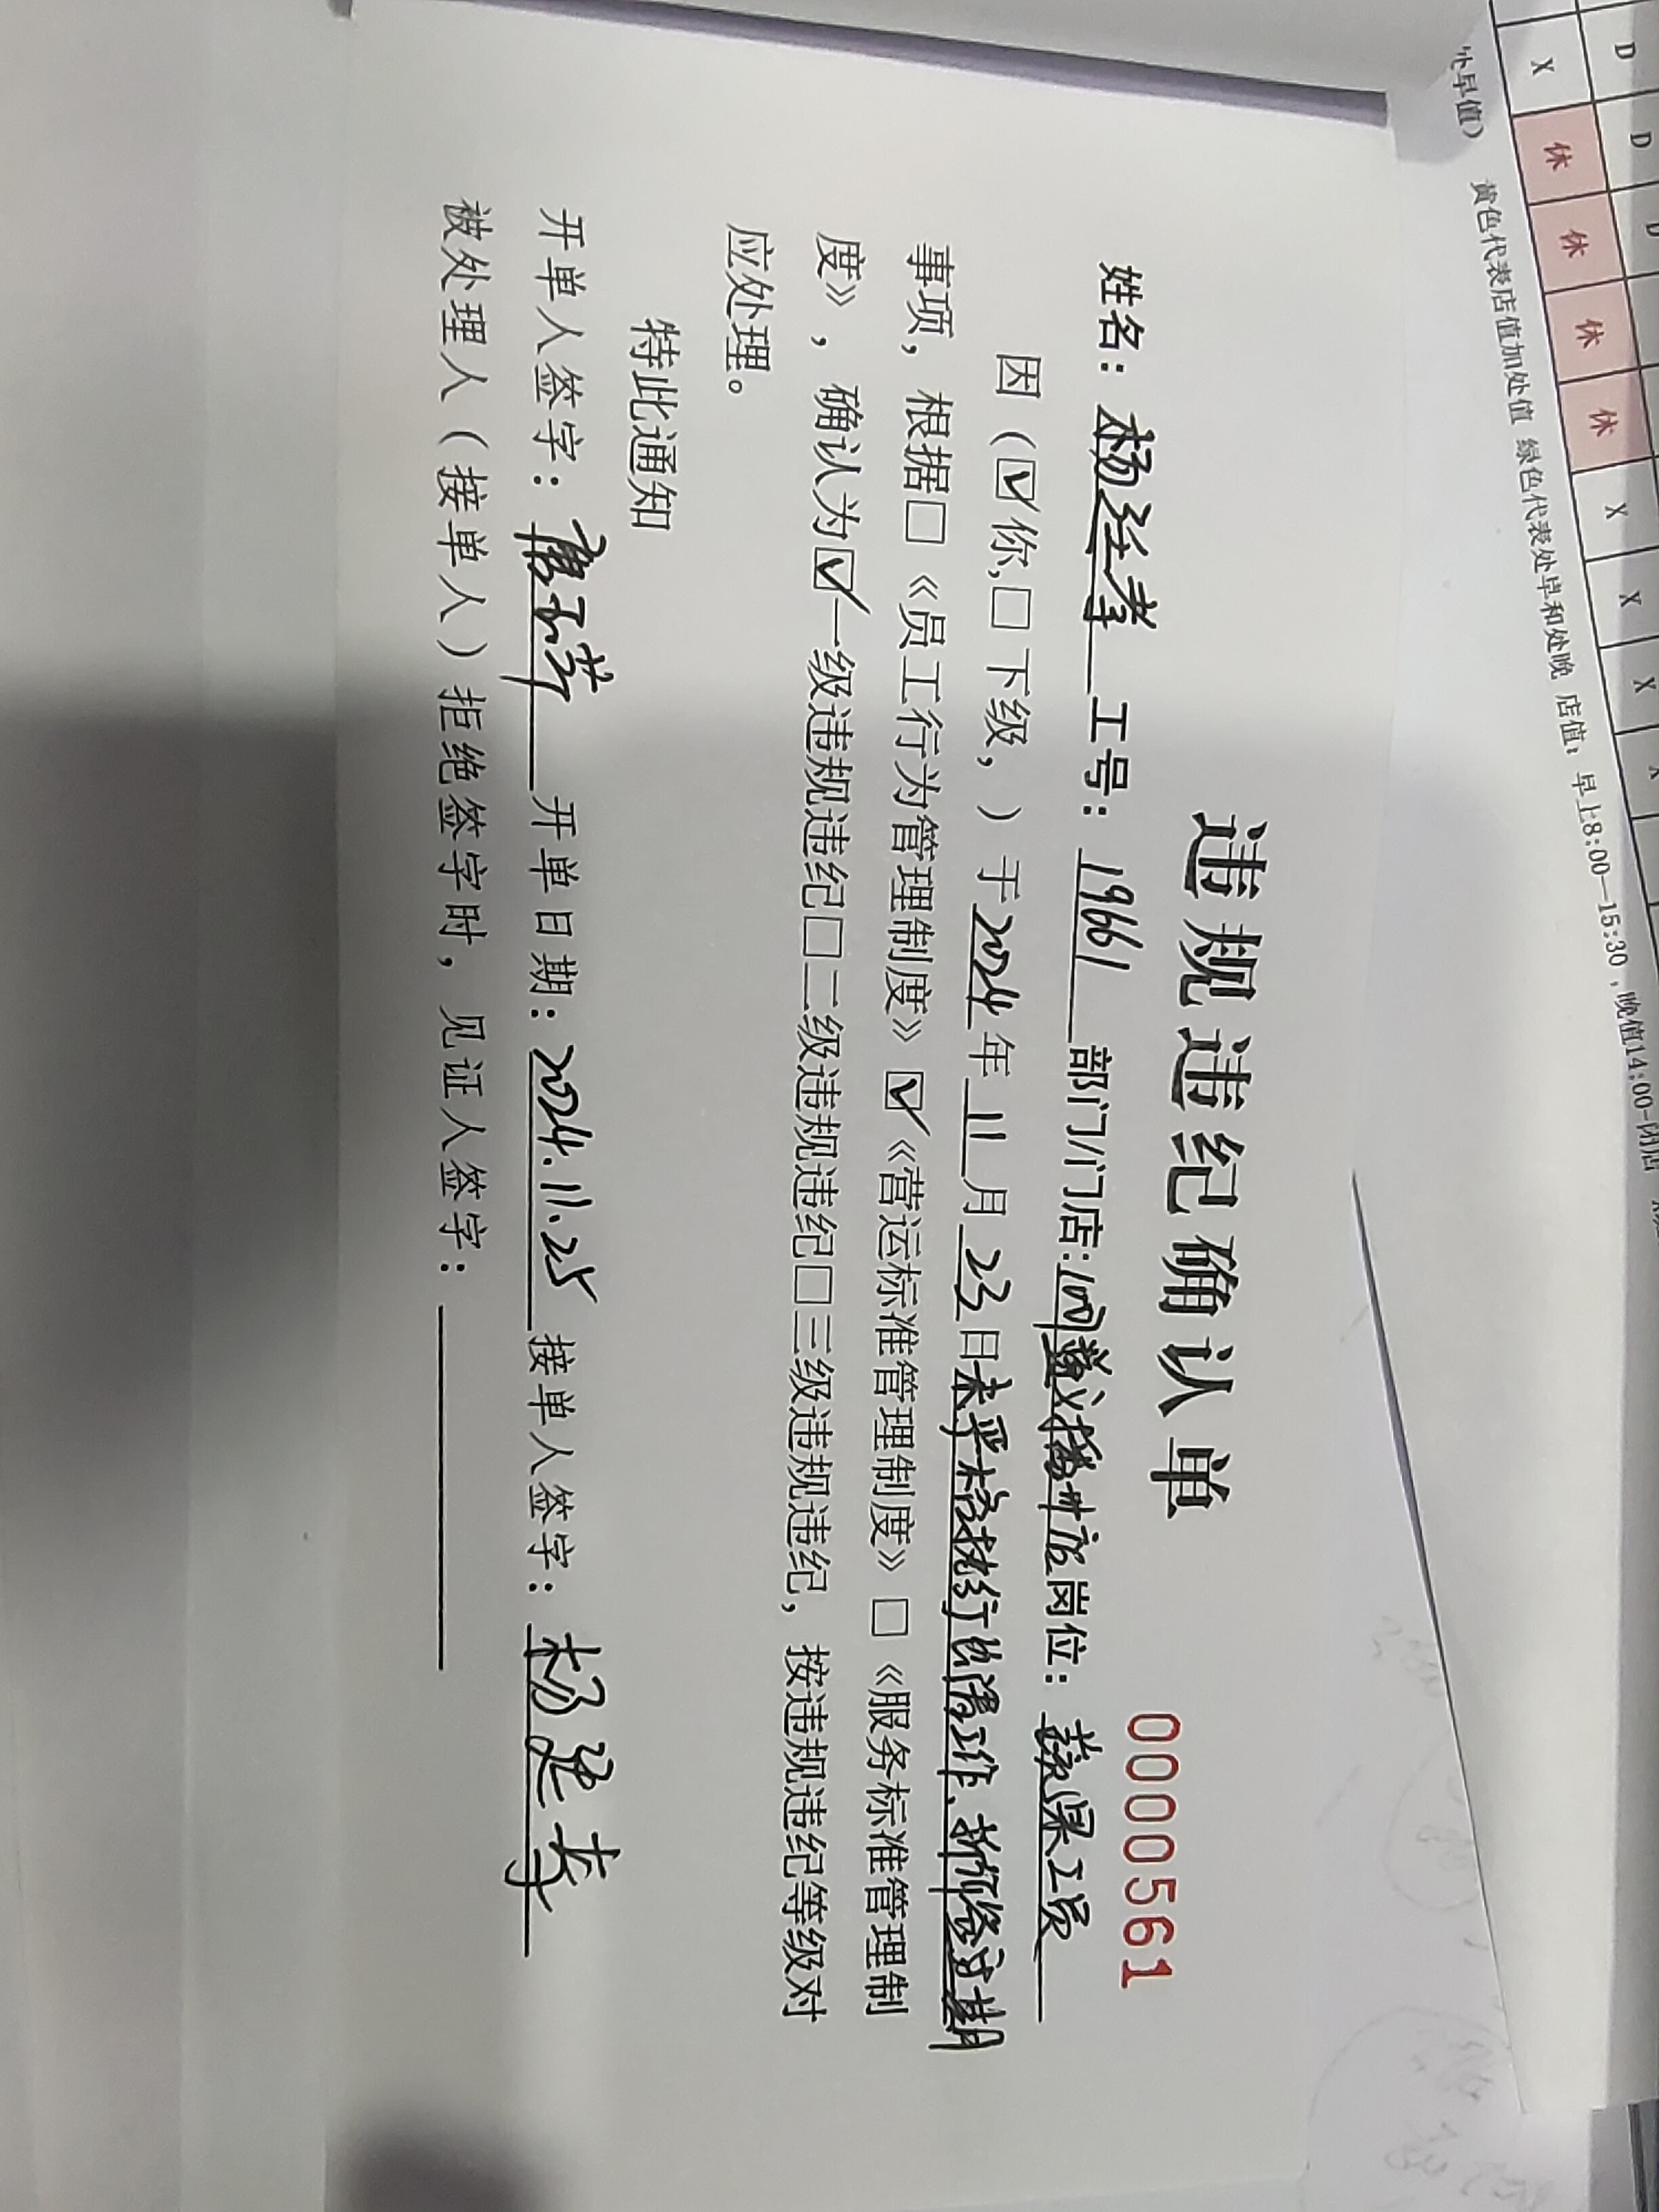 违规违纪确认单
00000561
姓名：杨廷孝 工号：19661 部门/门店：遵义播州店 岗位：蔬果工员
因（☑你，□下级，）于2024年11月23日未严格执行出清工作，折价签过期
事项，根据□《员工行为管理制度》☑《营运标准管理制度》□《服务标准管理制
度》，确认为☑一级违规违纪□二级违规违纪□三级违规违纪，按违规违纪等级对
应处理。
特此通知
开单人签字： 开单日期：2024.11.25 接单人签字：杨廷孝
被处理人（接单人）拒绝签字时，见证人签字：
D D D
X 休 休 休 休 X X X X
处早值） 黄色代表店值加处值 绿色代表处早和处晚 店值：早上8:00-15:30，晚值14:00-闭店